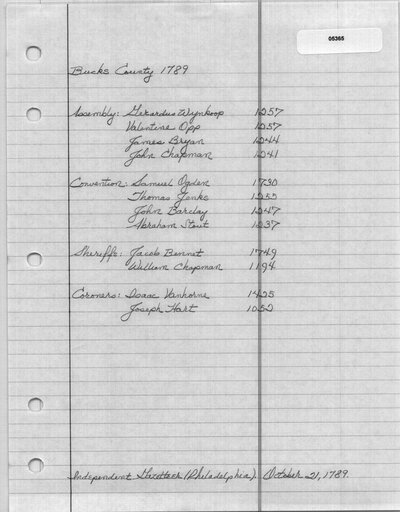 05365
Bucks County 1789
Assembly: Gerardus Wynkoop 1257
Valentine Opp 1257
James Bryan 1244
John Chapman 1241
Convention: Samuel Ogden 1730
Thomas Jenks 1255
John Barclay 1247
Abraham Stout 1237
Sheriffs: Jacob Bennet 1749
William Chapman 1194
Coroners: Isaac Vanhorne 1425
Joseph Hart 1052
Independent Gazetteer (Philadelphia). October 21, 1789.